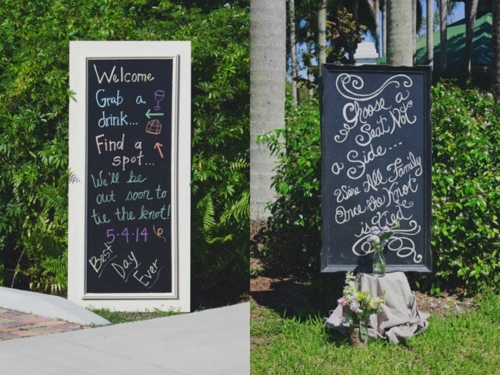 Welcome
Grab a
drink...
Find a
spot...
We'll be
out soon to
tie the knot!
5-4-14
Best
Day
Ever
Choose a
Seat Not
a Side...
We're All Family
Once the Knot
is Tied